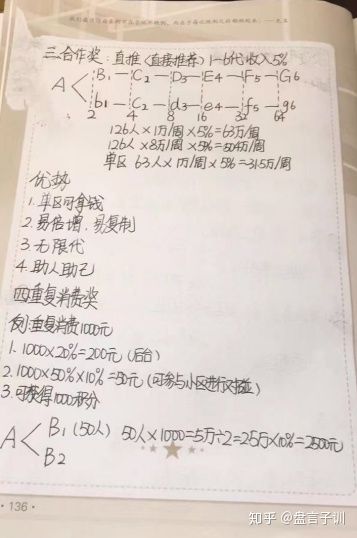 三.合作奖:直推(直接推荐)1-6代收入5%
A < B1—C2—D3—E4—F5—G6
b1—C2—d3—e4—f5—g6
2 4 8 16 32 64
126人×1万/周×5%=6.3万/周
126人×8万/周×5%=50.4万/周
单区 63人×1万/周×5%=3.15万/周
优势
1.单区可拿钱
2.易倍增、易复制
3.无限代
4.助人助己
四重复消费奖
例:重复消费1000元
1. 1000×20%=200元(后台)
2. 1000×50%×10%=50元(可参与小区进行对碰)
3.可获得1000积分
A < B1(50人) 50人×1000=5万÷2=2.5万×10%=2500元
B2
·136·
知乎 @盘言子训